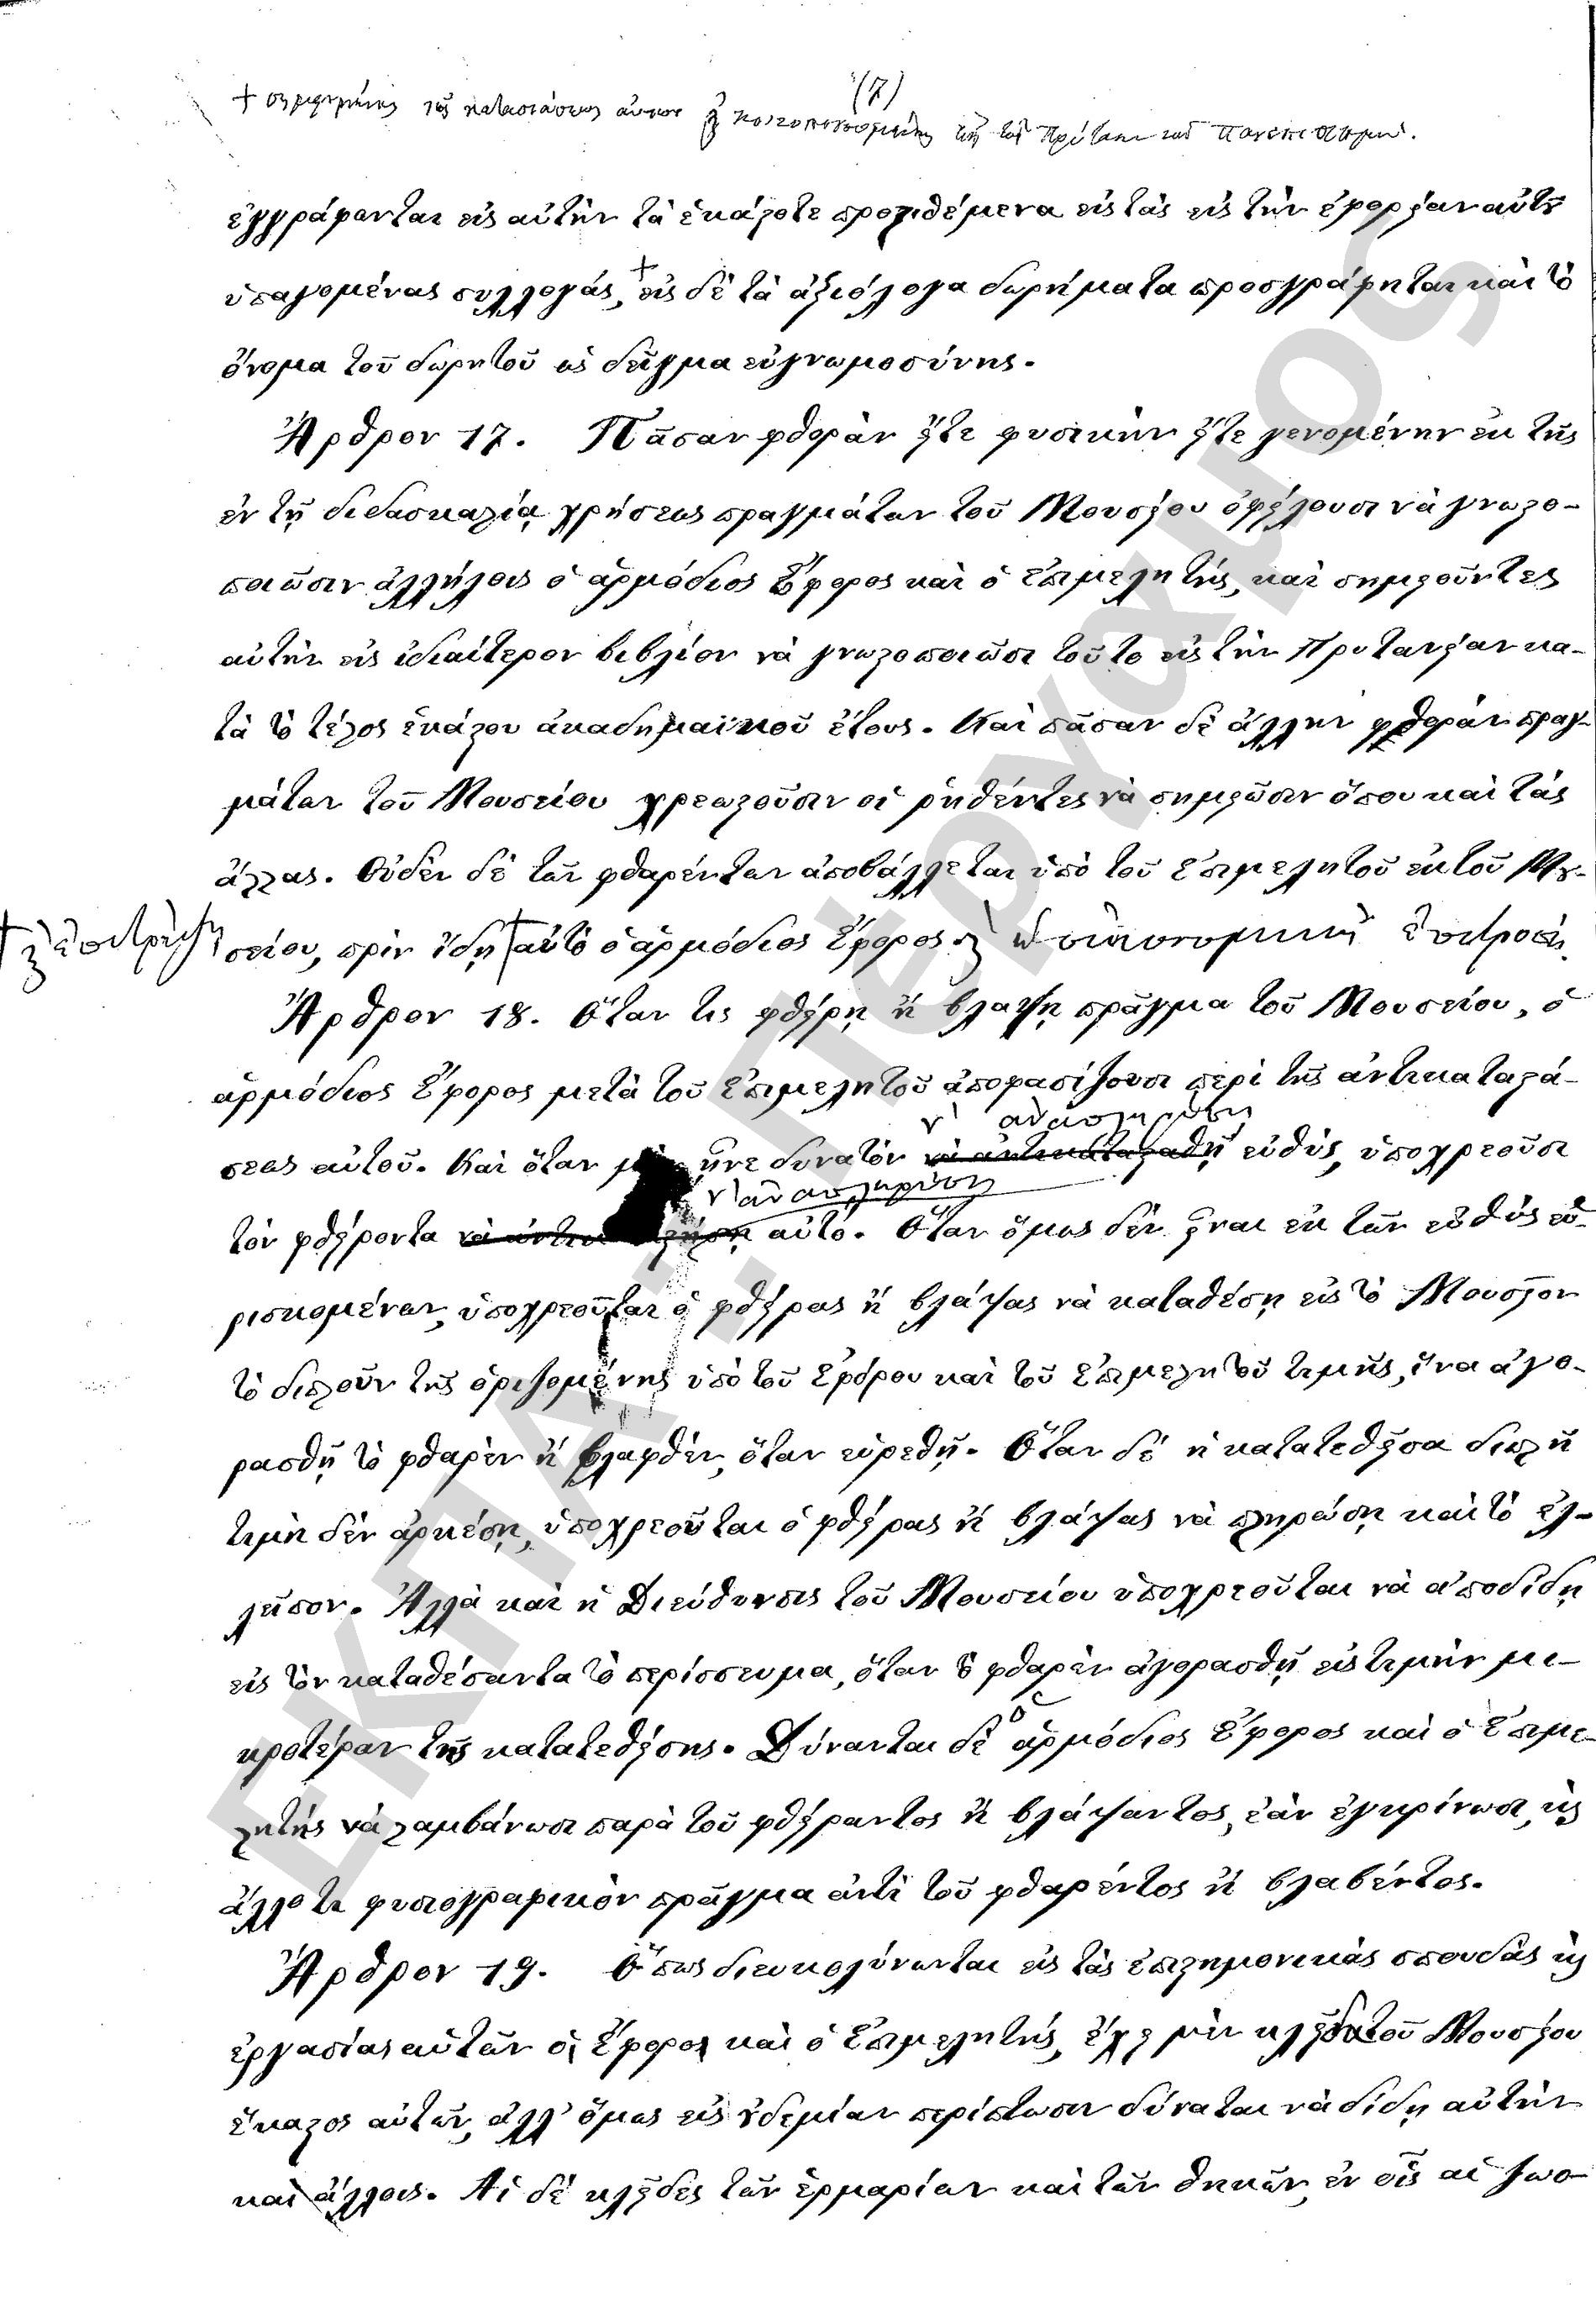 (7)
+ σημειουμένης τῆς καταστάσεως αὐτῶν καὶ κοινοποιουμένης εἰς τὸν Πρύτανιν τοῦ Πανεπιστημίου.
ἐγγράφονται εἰς αὐτὴν τὰ ἑκάστοτε προστιθέμενα εἰς τὰς εἰς τὴν ἐφορείαν αὐτοῦ
ὑπαγομένας συλλογάς,+ εἰς δὲ τὰ ἀξιόλογα δωρήματα προσγράφηται καὶ τὸ
ὄνομα τοῦ δωρητοῦ ὡς δεῖγμα εὐγνωμοσύνης.
Ἄρθρον 17. Πᾶσαν φθορὰν εἴτε φυσικὴν εἴτε γενομένην ἐκ τῆς
ἐν τῇ διδασκαλίᾳ χρήσεως πραγμάτων τοῦ Μουσείου ὀφείλουσι νὰ γνωστο-
ποιῶσιν ἀλλήλοις ὁ ἁρμόδιος Ἔφορος καὶ ὁ Ἐπιμελητής, καὶ σημειοῦντες
αὐτὴν εἰς ἰδιαίτερον βιβλίον νὰ γνωστοποιῶσι τοῦτο εἰς τὴν Πρυτανείαν κα-
τὰ τὸ τέλος ἑκάστου ἀκαδημαϊκοῦ ἔτους. Καὶ πᾶσαν δὲ ἄλλην φθορὰν πραγ-
μάτων τοῦ Μουσείου χρεωστοῦσιν οἱ ῥηθέντες νὰ σημειῶσιν ὅπου καὶ τὰς
ἄλλας. Οὐδὲν δὲ τῶν φθαρέντων ἀποβάλλεται ὑπὸ τοῦ Ἐπιμελητοῦ ἐκ τοῦ Μου-
+ καὶ ἐπιτρέψῃ
σείου, πρὶν ἴδῃ + αὐτὸ ὁ ἁρμόδιος Ἔφορος καὶ ἡ οἰκονομικὴ ἐπιτροπή.
Ἄρθρον 18. Ὅταν τις φθείρῃ ἢ βλαψῃ πρᾶγμα τοῦ Μουσείου, ὁ
ἁρμόδιος Ἔφορος μετὰ τοῦ Ἐπιμελητοῦ ἀποφασίζουσι περὶ τῆς ἀντικαταστά-
ν' ἀναπληρωθῇ
σεως αὐτοῦ. Καὶ ὅταν ᾖνε δυνατὸν νὰ ἀντικατασταθῇ εὐθύς, ὑποχρεοῦσι
ν' ἀναπληρώσῃ
τὸν φθείροντα αὐτό. Ὅταν ὅμως δὲν εἶναι ἐκ τῶν εὐθὺς εὑ-
ρισκομένων, ὑποχρεοῦται ὁ φθείρας ἢ βλάψας νὰ καταθέσῃ εἰς τὸ Μουσεῖον
τὸ διπλοῦν τῆς ὁριζομένης ὑπὸ τοῦ Ἐφόρου καὶ τοῦ Ἐπιμελητοῦ τιμῆς, ἵνα ἀγο-
ρασθῇ τὸ φθαρὲν ἢ βλαφθέν, ὅταν εὑρεθῇ. Ὅταν δὲ ἡ κατατεθεῖσα διπλῆ
τιμὴ δὲν ἀρκέσῃ, ὑποχρεοῦται ὁ φθείρας ἢ βλάψας νὰ πληρώσῃ καὶ τὸ ἐλ-
λεῖπον. Ἀλλὰ καὶ ἡ Διεύθυνσις τοῦ Μουσείου ὑποχρεοῦται νὰ ἀποδίδῃ
εἰς τὸν καταθέσαντα τὸ περίσσευμα, ὅταν τὸ φθαρὲν ἀγορασθῇ εἰς τιμὴν μι-
κροτέραν τῆς κατατεθείσης. Δύνανται δὲ ὁ ἁρμόδιος Ἔφορος καὶ ὁ Ἐπιμε-
λητὴς νὰ λαμβάνωσι παρὰ τοῦ φθείραντος ἢ βλάψαντος, ἐὰν ἐγκρίνωσι, καὶ
ἄλλο τι φυσιογραφικὸν πρᾶγμα ἀντὶ τοῦ φθαρέντος ἢ βλαβέντος.
Ἄρθρον 19. Ὅπως διευκολύνωνται εἰς τὰς ἐπιστημονικὰς σπουδὰς καὶ
ἐργασίας αὐτῶν οἱ Ἔφοροι καὶ ὁ Ἐπιμελητής, ἔχει μὲν κλεῖδα τοῦ Μουσείου
ἕκαστος αὐτῶν, ἀλλ' ὅμως εἰς οὐδεμίαν περίπτωσιν δύναται νὰ δίδῃ αὐτὴν
καὶ ἄλλοις. Αἱ δὲ κλεῖδες τῶν ἑρμαρίων καὶ τῶν θηκῶν, ἐν οἷς αἱ ζωο-
ΕΚΠΑ - ΠΕΡΓΑΜΟΣ